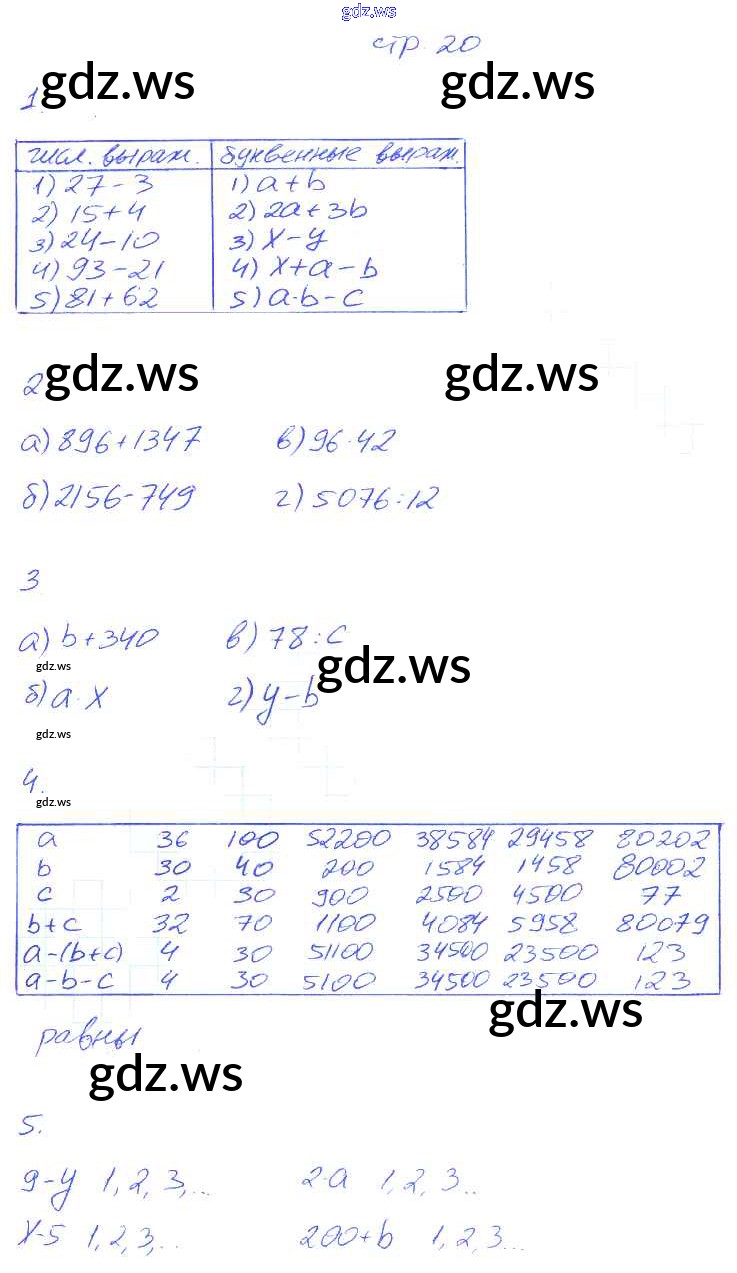 gdz.ws
стр. 20
gdz.ws gdz.ws
1.
числ. выраж. буквенные выраж.
1) 27-3 1) a+b
2) 15+4 2) 2a+3b
3) 24-10 3) x-y
4) 93-21 4) x+a-b
5) 81+62 5) a·b-c
2 gdz.ws gdz.ws
а) 896+1347 в) 96·42
б) 2156-749 г) 5076:12
3
а) b+340 в) 78:c
gdz.ws gdz.ws
б) a·x г) y-b
gdz.ws
4.
gdz.ws
a 36 100 52200 38584 29458 80202
b 30 40 200 1584 1458 80002
c 2 30 900 2500 4500 77
b+c 32 70 1100 4084 5958 80079
a-(b+c) 4 30 51100 34500 23500 123
a-b-c 4 30 5100 34500 23500 123
gdz.ws
равны
gdz.ws
5.
9-y 1,2,3,... 2·a 1,2,3..
x-5 1,2,3,.. 200+b 1,2,3...